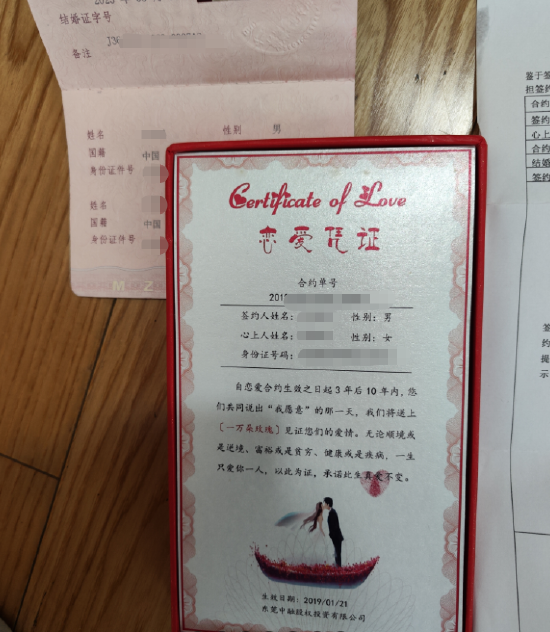 结婚证字号
备注
姓名 性别 男
国籍 中国
身份证件号
姓名
国籍 中国
身份证件号
M Z
Certificate of Love
恋爱凭证
合约单号
签约人姓名: 性别: 男
心上人姓名: 性别: 女
身份证号码:
自恋爱合约生效之日起3年后10年内,您
们共同说出“我愿意”的那一天,我们将送上
〔一万朵玫瑰〕见证您们的爱情。无论顺境或
是逆境、富裕或是贫穷、健康或是疾病,一生
只爱你一人,以此为证,承诺此生真爱不变。
生效日期: 2019/01/21
东莞中融股权投资有限公司
鉴于签
担签约
合约
签约
心上
合约
结婚
签约
签
约
提
示